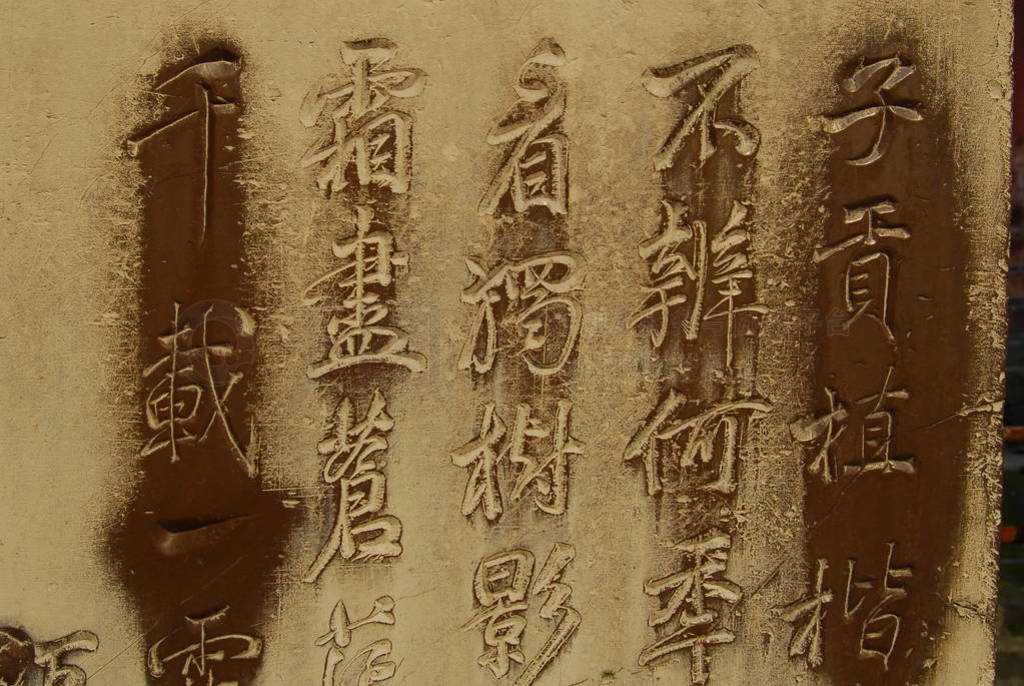 子貢植楷
不辨何秊
看獨樹影
霜盡蒼茫
千載一